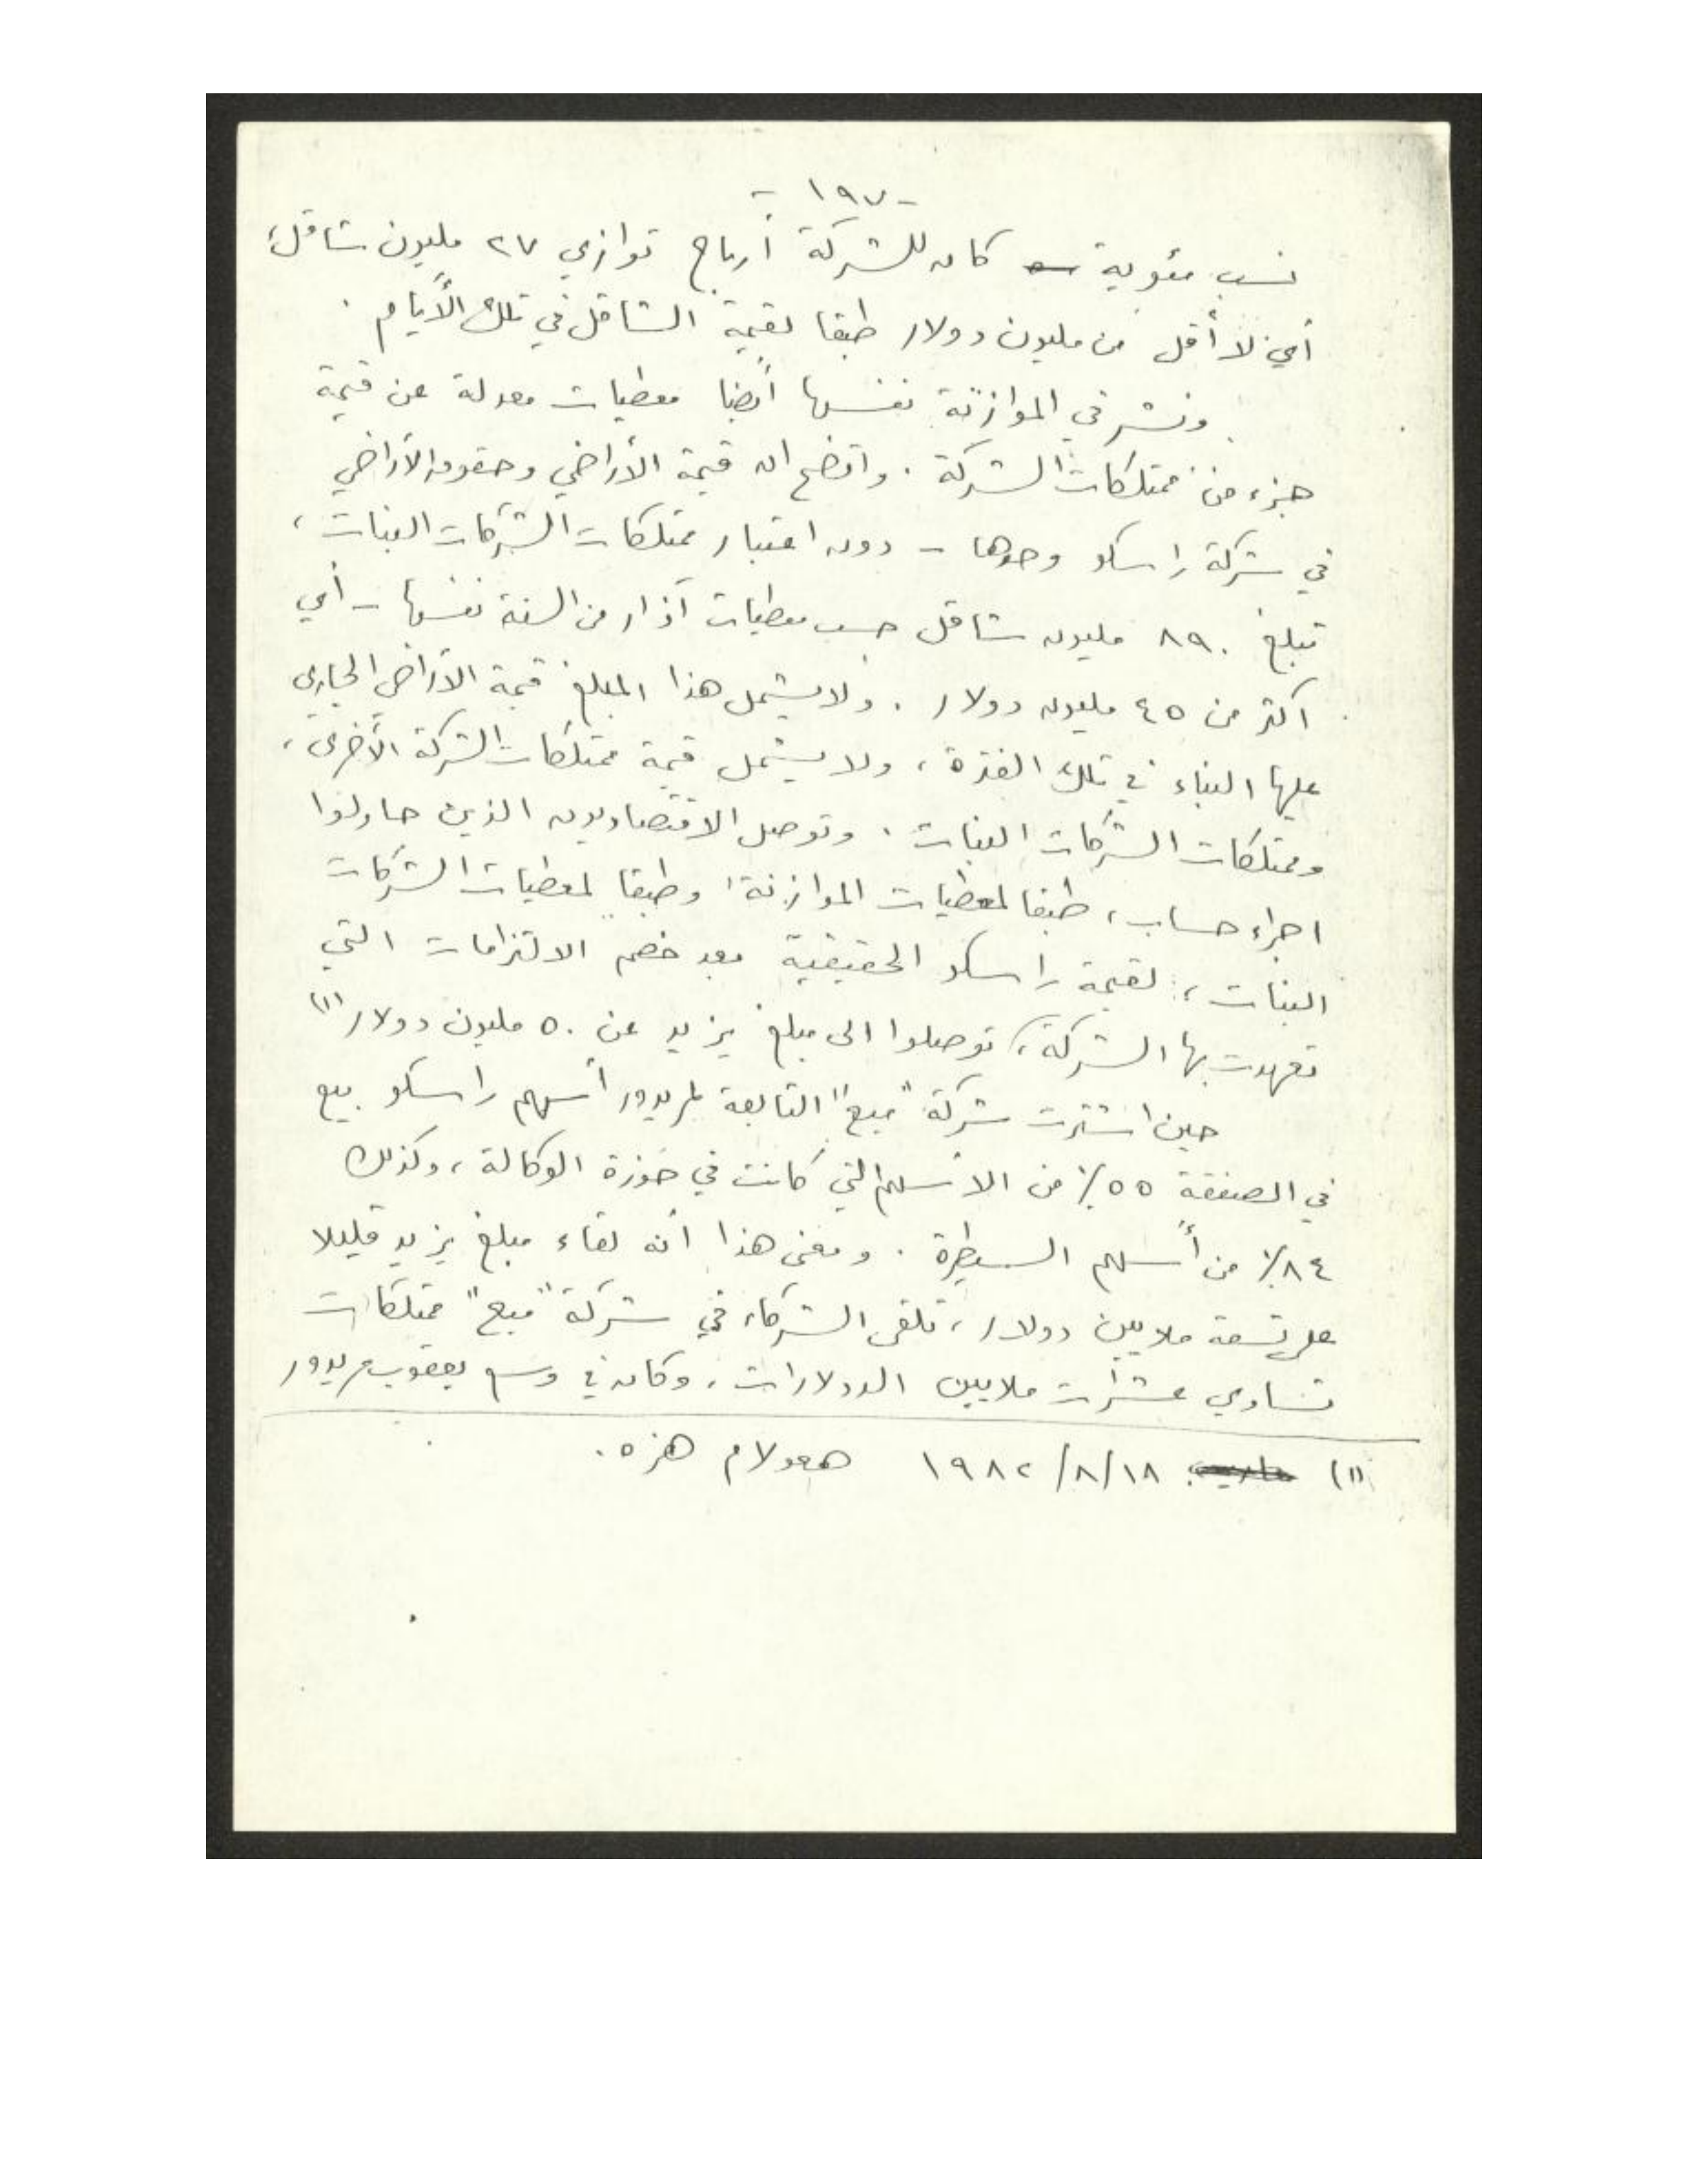 - ١٩٧ -
نسب مئوية كان للشركة أرباح توازي ٢٧ مليون شاقل،
أي لا أقل من مليون دولار طبقا لقيمة الشاقل في تلك الأيام.
ونشر في الموازنة نفسها أيضا معطيات معدلة عن قيمة
جزء من ممتلكات الشركة. واتضح ان قيمة الأراضي وحقوق الأراضي
في شركة راسكو وحدها - دون اعتبار ممتلكات الشركات البنات،
تبلغ ٨٩٠ مليون شاقل حسب معطيات آذار من السنة نفسها - أي
اكثر من ٤٥ مليون دولار. ولا يشمل هذا المبلغ قيمة الأراضي الجاري
عليها البناء في تلك الفترة، ولا يشمل قيمة ممتلكات الشركة الأخرى،
وممتلكات الشركات البنات. وتوصل الاقتصاديون الذين حاولوا
اجراء حساب، طبقا لمعطيات الموازنة، وطبقا لمعطيات الشركات
البنات، لقيمة راسكو الحقيقية بعد خصم الالتزامات التي
تعهدت بها الشركة، توصلوا الى مبلغ يزيد عن ٥٠ مليون دولار (١)
حين اشترت شركة "مبع" التابعة لمريدور أسهم راسكو بيع
في الصفقة ٥٥٪ من الأسهم التي كانت في حوزة الوكالة، وكذلك
٨٤٪ من أسهم السيطرة. ومعنى هذا أنه لقاء مبلغ يزيد قليلا
على تسعة ملايين دولار، تلقى الشركاء في شركة "مبع" ممتلكات
تساوي عشرات ملايين الدولارات، وكان في وسع يعقوب مريدور
(١) ١٩٨٢/٨/١٨ هعولام هزه.